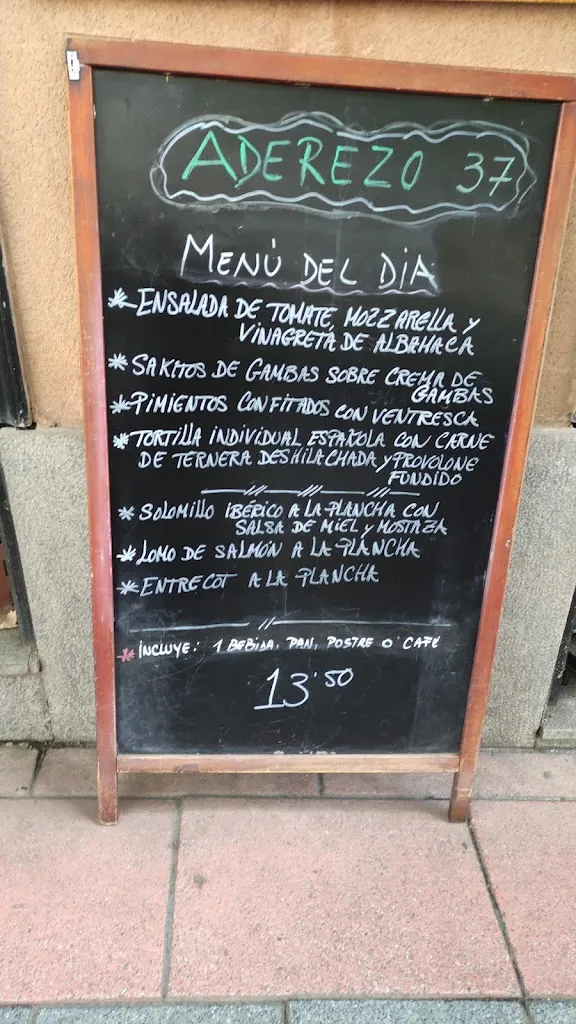 ADEREZO 37
MENÚ DEL DIA
* ENSALADA DE TOMATE, MOZZARELLA Y
VINAGRETA DE ALBAHACA
* SAKITOS DE GAMBAS SOBRE CREMA DE
GAMBAS
* PIMIENTOS CONFITADOS CON VENTRESCA
* TORTILLA INDIVIDUAL ESPAÑOLA CON CARNE
DE TERNERA DESHILACHADA Y PROVOLONE
FUNDIDO
* SOLOMILLO IBÉRICO A LA PLANCHA CON
SALSA DE MIEL Y MOSTAZA
* LOMO DE SALMÓN A LA PLANCHA
* ENTRECOT A LA PLANCHA
* INCLUYE: 1 BEBIDA, PAN, POSTRE O CAFÉ
13'50